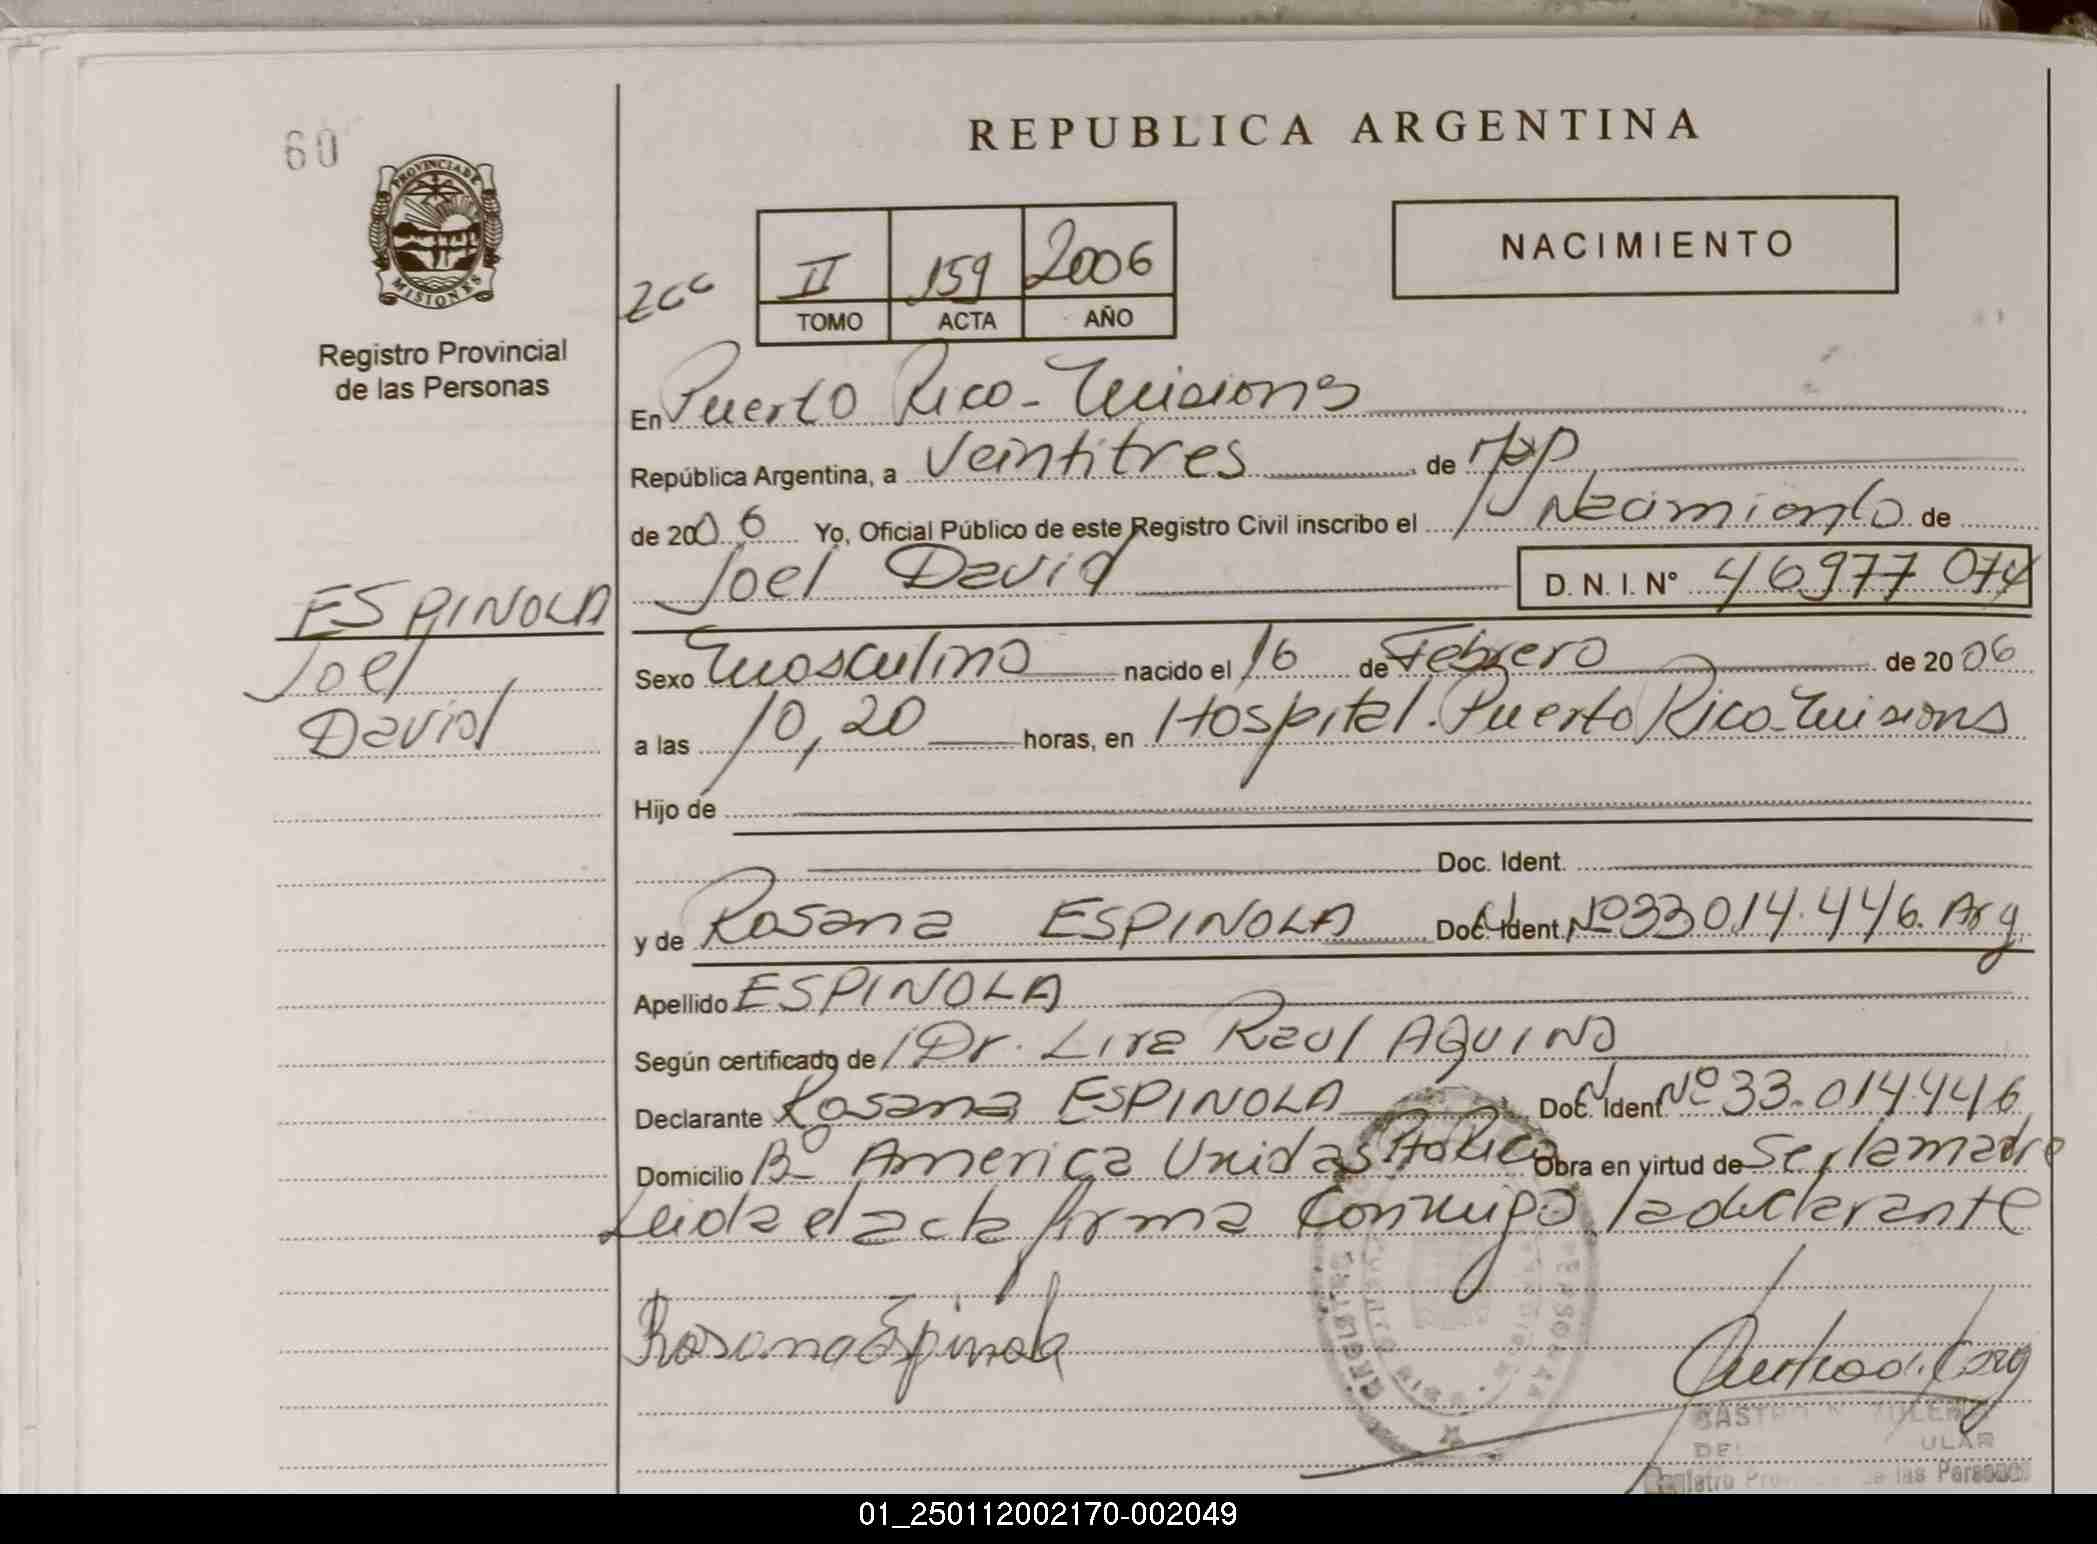 60
REPUBLICA ARGENTINA
PROVINCIA DE
MISIONES
Registro Provincial
de las Personas
NACIMIENTO
II 159 2006
TOMO ACTA AÑO
En Puerto Rico - Misiones
República Argentina, a Veintitres de
de 2006 Yo, Oficial Público de este Registro Civil inscribo el Nacimiento de
Joel David D. N. I. N° 46977074
ESPINOLA
Joel
David
Sexo Masculino nacido el 16 de Febrero de 2006
a las 10,20 horas, en Hospital. Puerto Rico - Misiones
Hijo de
Doc. Ident.
y de Rosana ESPINOLA Doc. Ident. Nº 33014.446. Arg.
Apellido ESPINOLA
Según certificado de Dr. Lira Raul AQUINO
Declarante Rosana ESPINOLA Doc. Ident. Nº 33.014.446
Domicilio Bº America Unidas Pto Rico Obra en virtud de Ser la madre
Leida el acta firma conmigo la declarante
Rosana Espinola
01_250112002170-002049